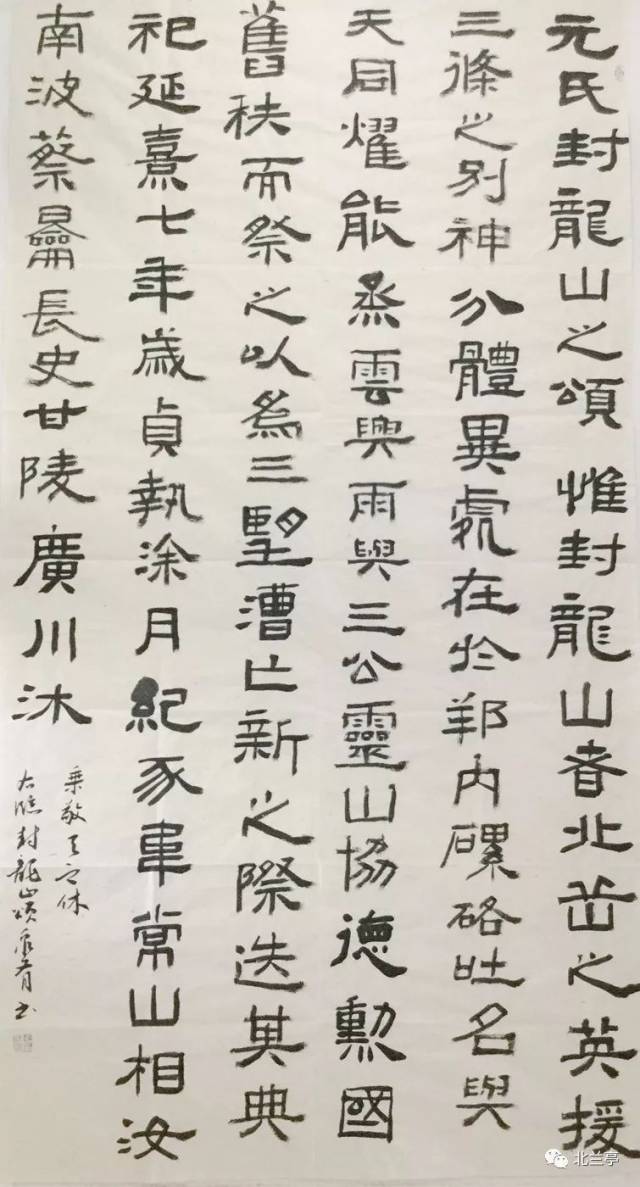 元氏封龍山之頌惟封龍山者北岳之英援
三條之别神分體異處在於邦内磥硌吐名與
天同燿能烝雲興雨與三公靈山協德勲國
舊秩而祭之以為三望遭亡新之際迭其典
祀延熹七年歲貞執涂月紀豕韋常山相汝
南波蔡𣋒長史甘陵廣川沐
乘敬天之休
右臨封龍山頌
北兰亭